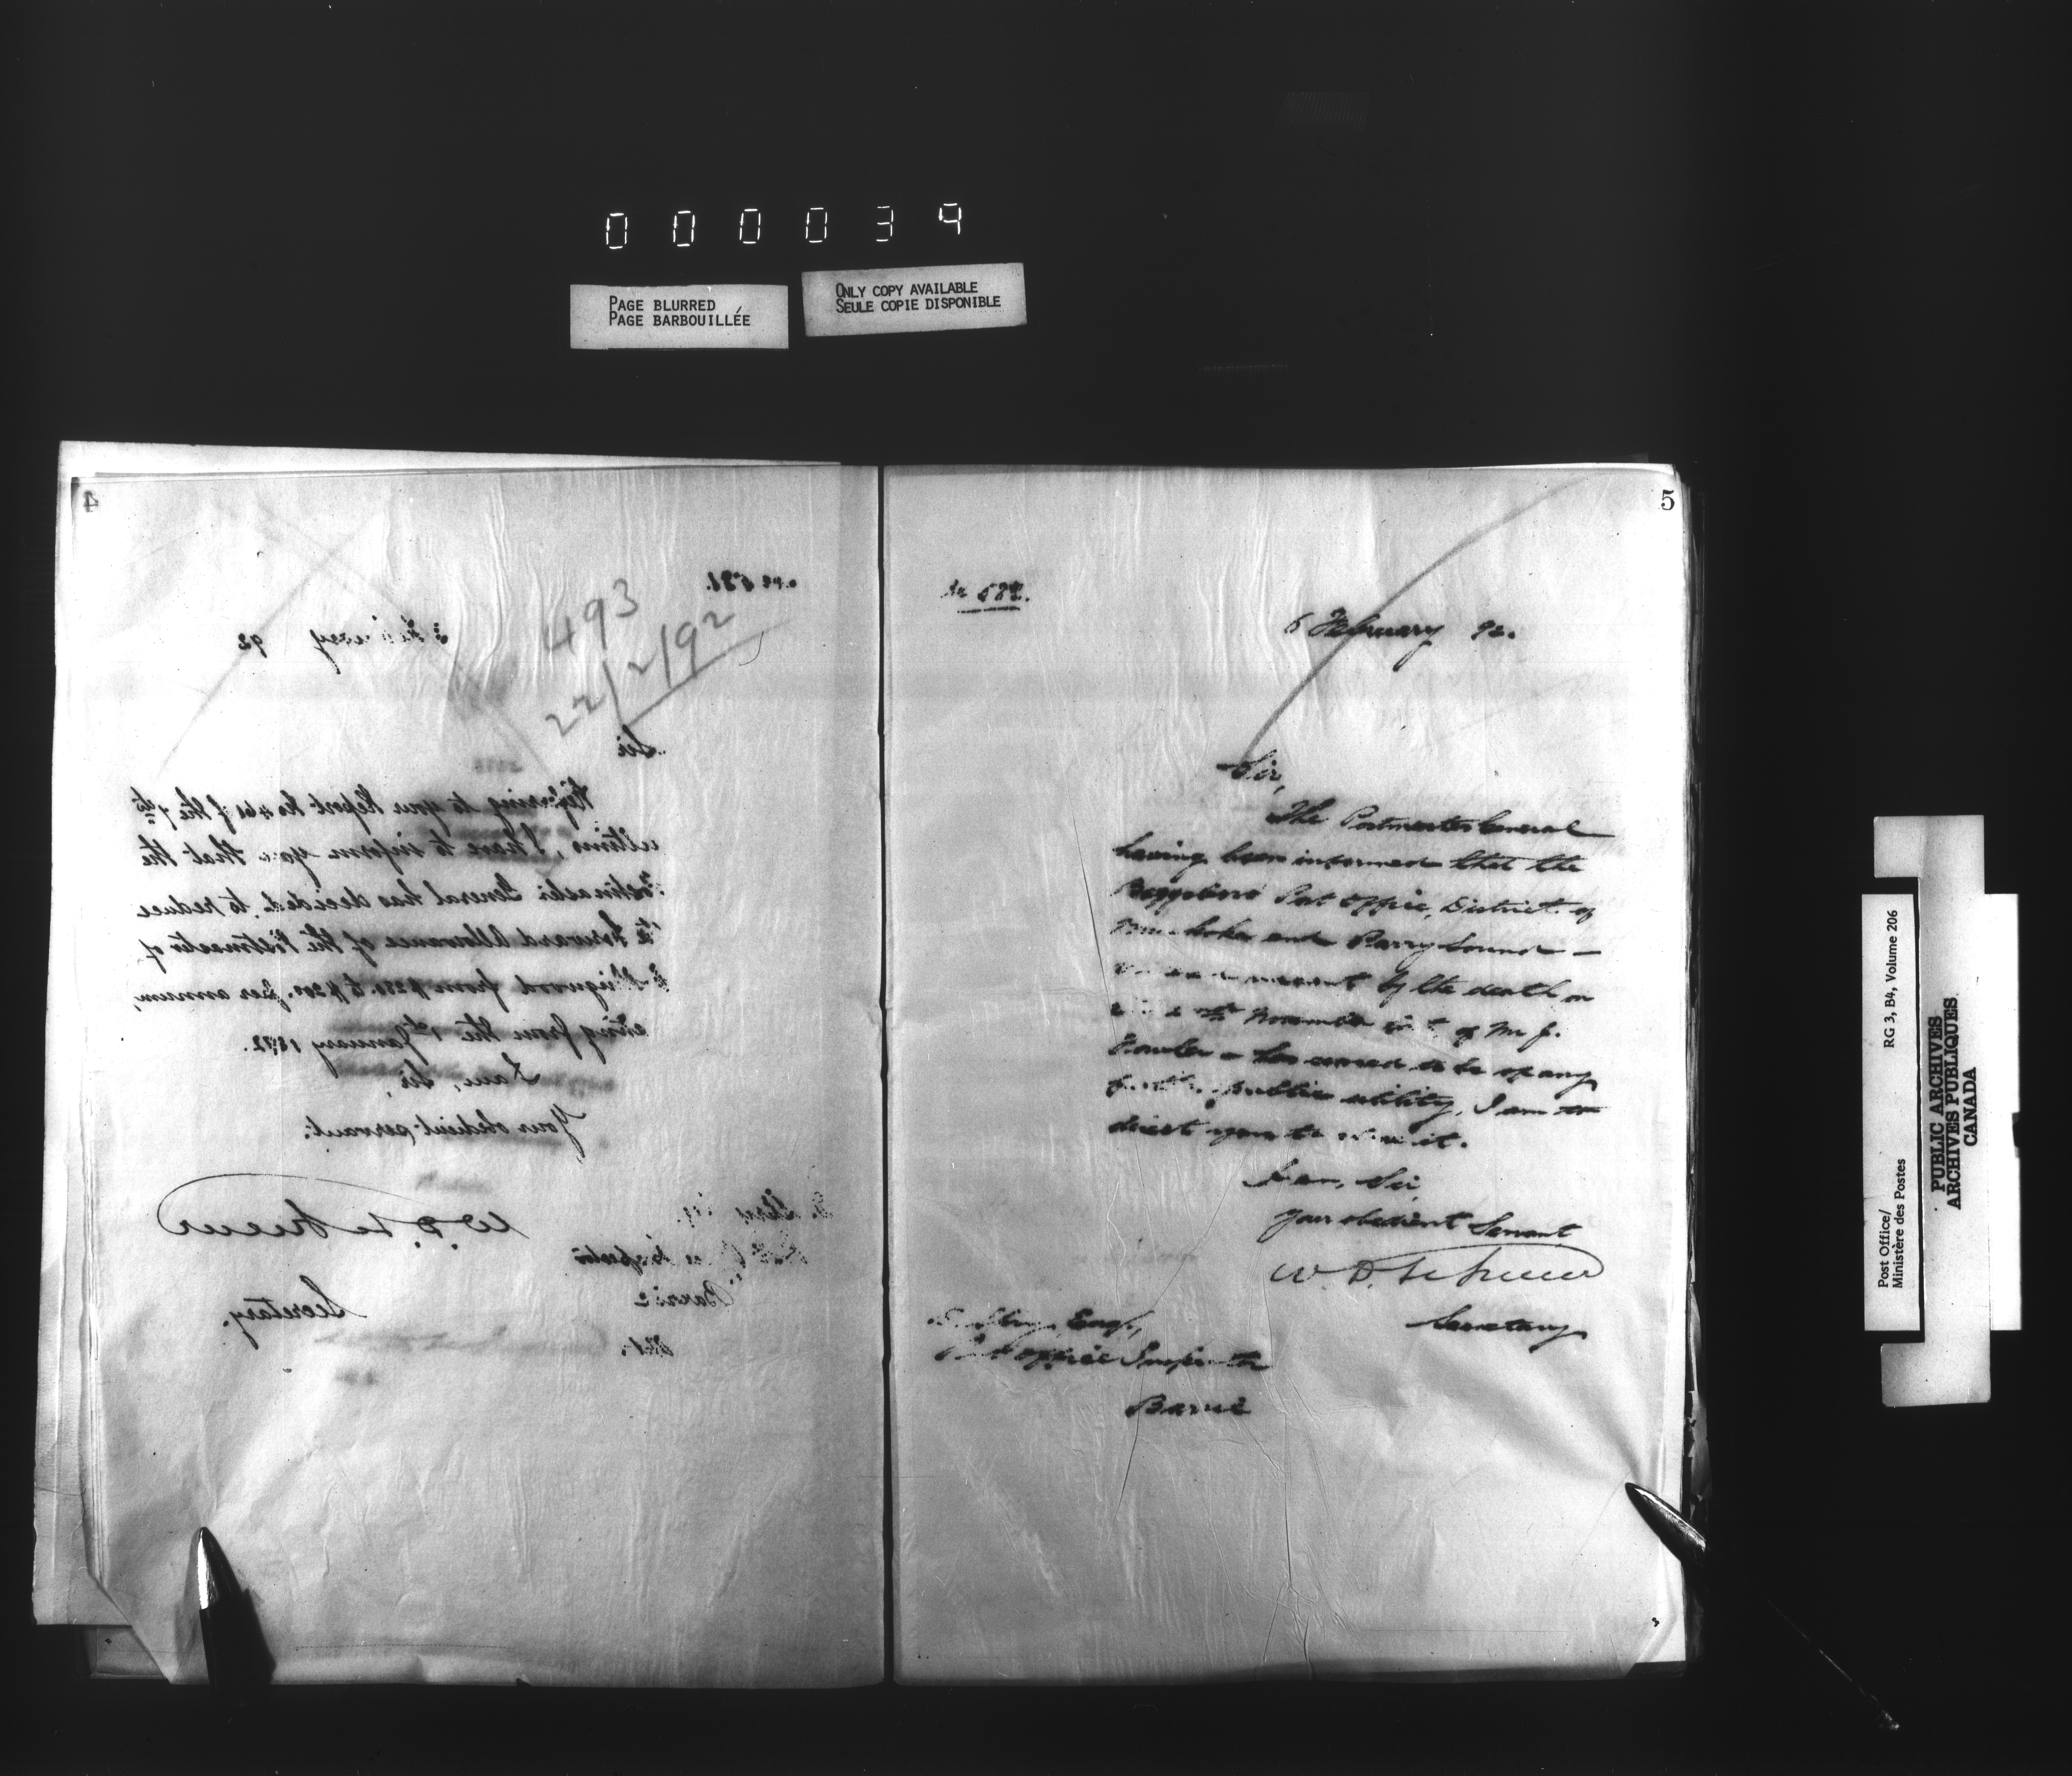 000039
PAGE BLURRED
PAGE BARBOUILLÉE
ONLY COPY AVAILABLE
SEULE COPIE DISPONIBLE
4
No 581.
493
22/2/92
92
Sir
Referring to your Report No 461 of the 7th
ultimo, I have to inform you that the
Postmaster General has decided to reduce
the Forward Allowance of the Postmaster of
Collingwood from $250. to $200. per annum,
dating from the 1st January 1892.
I am, Sir,
Your obedient servant.
W. D. LeSueur
Secretary.
Post Office Inspector
Barrie
Ont.
5
No 582.
6 February 92.
Sir,
The Postmaster General
having been informed that the
Post Office, District of
Muskoka and Parry Sound —
by the death on
November of Mr J.
has ceased to be of any
further public utility, I am to
direct you to
I am, Sir,
Your obedient Servant
W. D. LeSueur
Secretary
Esq.,
Post Office Inspector
Barrie
Post Office/
Ministère des Postes
RG 3, B4, Volume 206
PUBLIC ARCHIVES
ARCHIVES PUBLIQUES
CANADA